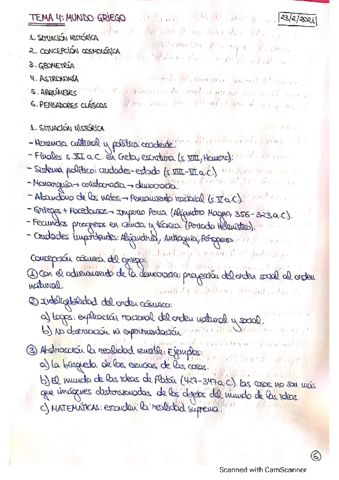 TEMA 4: MUNDO GRIEGO
23/2/2021
1. SITUACIÓN HISTÓRICA
2. CONCEPCIÓN COSMOLÓGICA
3. GEOMETRÍA
4. ASTRONOMÍA
5. ARQUÍMEDES
6. PENSADORES CLÁSICOS
1. SITUACIÓN HISTÓRICA
- Herencia cultural y política occidente.
- Finales s. XX a.C. en Creta, escritura (s. VIII, Homero).
- Sistema político: ciudades-estado (s. VIII-VI a.C.)
- Monarquía → → democracia.
- Abandono de los mitos → Pensamiento racional (s. V a.C.).
- Griegos + Macedonios → Imperio Persa (Alejandro Magno, 356-323 a.C.).
- Fecundos progresos en ciencia y técnica (Periodo Helenístico).
- Ciudades importantes: Alejandría, Antioquía, Pérgamo.
Concepción cósmica del griego:
① Con el advenimiento de la democracia: proyección del orden social al orden
natural.
② Inteligibilidad del orden cósmico:
a) Logos: explicación racional del orden natural y social.
b) No observación ni experimentación.
③ Abstracción la realidad sensible. Ejemplos:
a) La búsqueda de las esencias de las cosas.
b) El mundo de las ideas de Platón (427-347 a.C.) las cosas no son más
que imágenes distorsionadas de los objetos del mundo de las ideas.
c) MATEMÁTICAS: esconden la realidad suprema.
6
Scanned with CamScanner